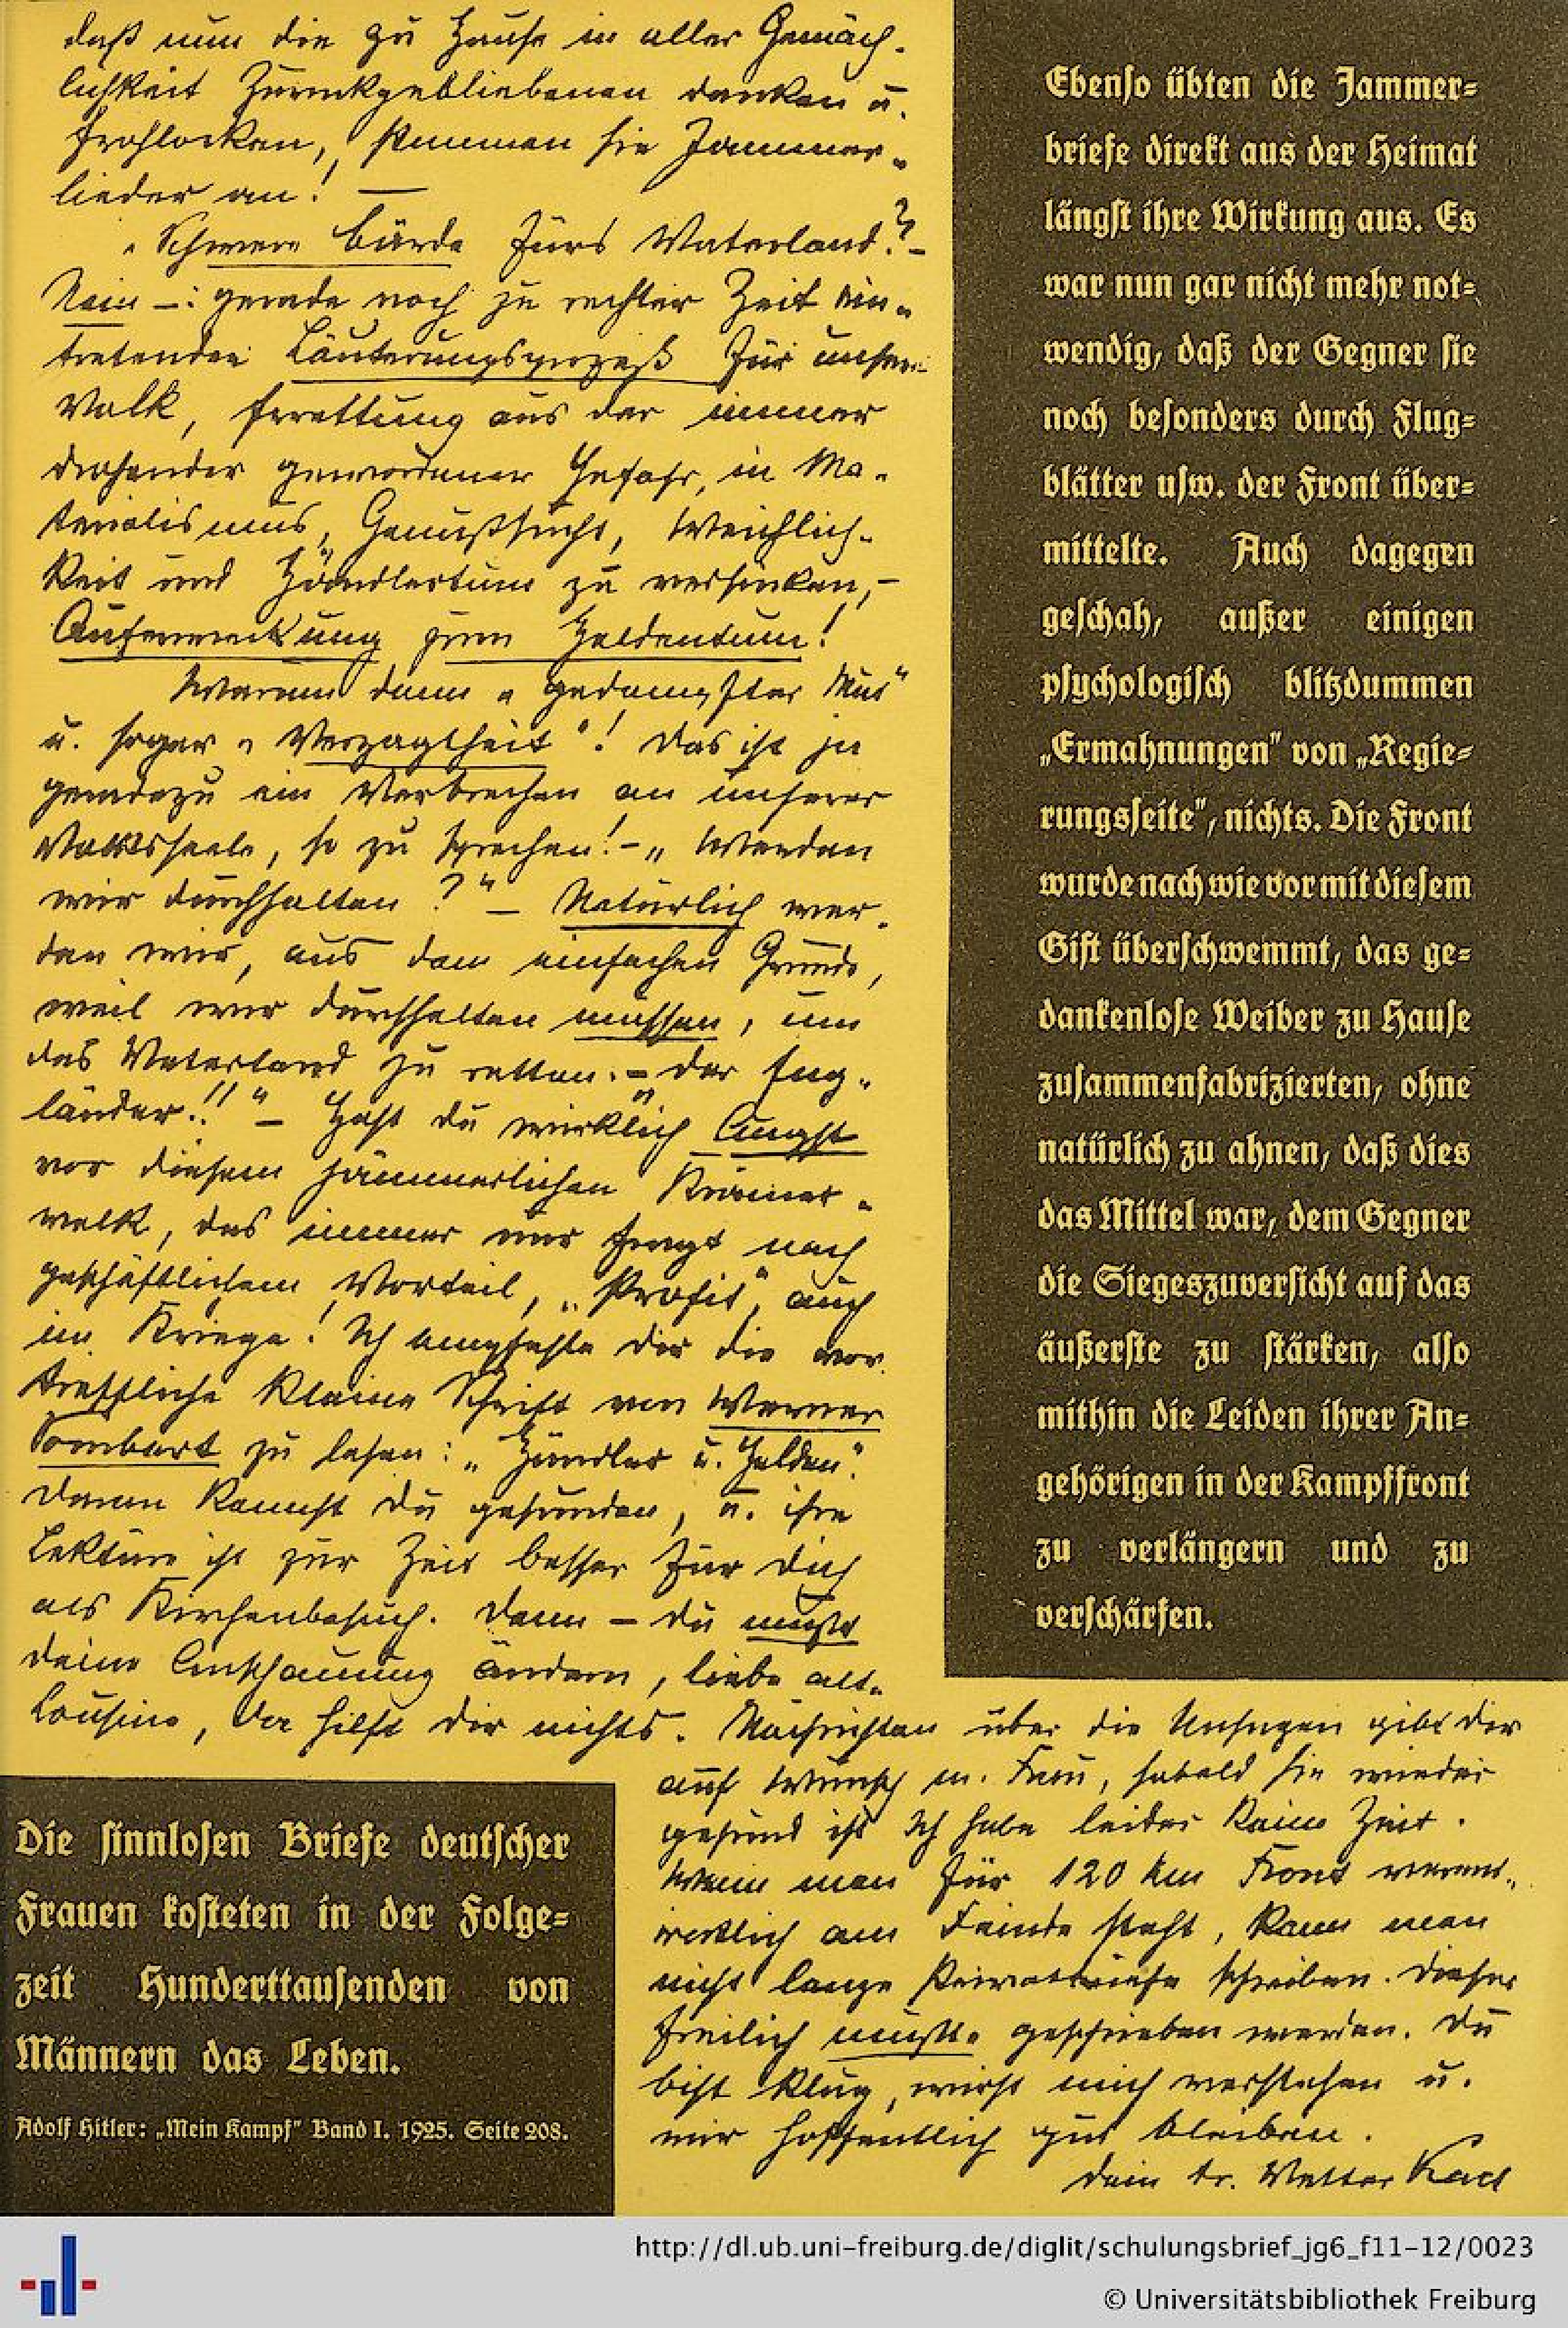 daß nun die zu Hause in aller Gemäch-
lichkeit Zurückgebliebenen danken u.
frohlocken, stimmen sie Jammer-
lieder an! —
„Schwere Bürde fürs Vaterland? –
Nein –: gerade noch zu rechter Zeit ein-
tretender Läuterungsprozeß für unser
Volk, Errettung aus der immer
drohender gewordenen Gefahr, in Ma-
terialismus, Genußsucht, Weichlich-
keit und Händlertum zu versinken, –
Auferweckung zum Heldentum!
Warum denn „gedämpfter Mut"
u. sogar „Verzagtheit"! Das ist ja
geradezu ein Verbrechen an unserer
Volksseele, so zu sprechen! – „Werden
wir durchhalten?" – Natürlich wer-
den wir, aus dem einfachen Grunde,
weil wir durchhalten müssen, um
das Vaterland zu retten. – „Der Eng-
länder!!" – Hast du wirklich Angst
vor diesem jämmerlichen Krämer-
volk, das immer nur fragt nach
geschäftlichem Vorteil, „Profit", auch
im Kriege! Ich empfehle dir die vor-
treffliche kleine Schrift von Werner
Sombart zu lesen: „Händler u. Helden".
Dann kannst du gesunden, u. ihre
Lektüre ist zur Zeit besser für dich
als Kirchenbesuch. Denn – du mußt
deine Anschauung ändern, liebe alte
Cousine, da hilft dir nichts. Nachrichten über die Unsrigen gibt dir
auf Wunsch m. Frau, sobald sie wieder
gesund ist. Ich habe leider keine Zeit.
Wenn man für 120 km Front verant-
wortlich am Feinde steht, kann man
nicht lange Privatbriefe schreiben. Dieser
freilich mußte geschrieben werden. Du
bist klug, wirst mich verstehen u.
mir hoffentlich gut bleiben.
Dein tr. Vetter Karl
Ebenso übten die Jammer-
briefe direkt aus der Heimat
längst ihre Wirkung aus. Es
war nun gar nicht mehr not-
wendig, daß der Gegner sie
noch besonders durch Flug-
blätter usw. der Front über-
mittelte. Auch dagegen
geschah, außer einigen
psychologisch blitzdummen
„Ermahnungen" von „Regie-
rungsseite", nichts. Die Front
wurde nach wie vor mit diesem
Gift überschwemmt, das ge-
dankenlose Weiber zu Hause
zusammenfabrizierten, ohne
natürlich zu ahnen, daß dies
das Mittel war, dem Gegner
die Siegeszuversicht auf das
äußerste zu stärken, also
mithin die Leiden ihrer An-
gehörigen in der Kampffront
zu verlängern und zu
verschärfen.
Die sinnlosen Briefe deutscher
Frauen kosteten in der Folge-
zeit Hunderttausenden von
Männern das Leben.
Adolf Hitler: „Mein Kampf" Band I. 1925. Seite 208.
http://dl.ub.uni-freiburg.de/diglit/schulungsbrief_jg6_f11-12/0023
© Universitätsbibliothek Freiburg